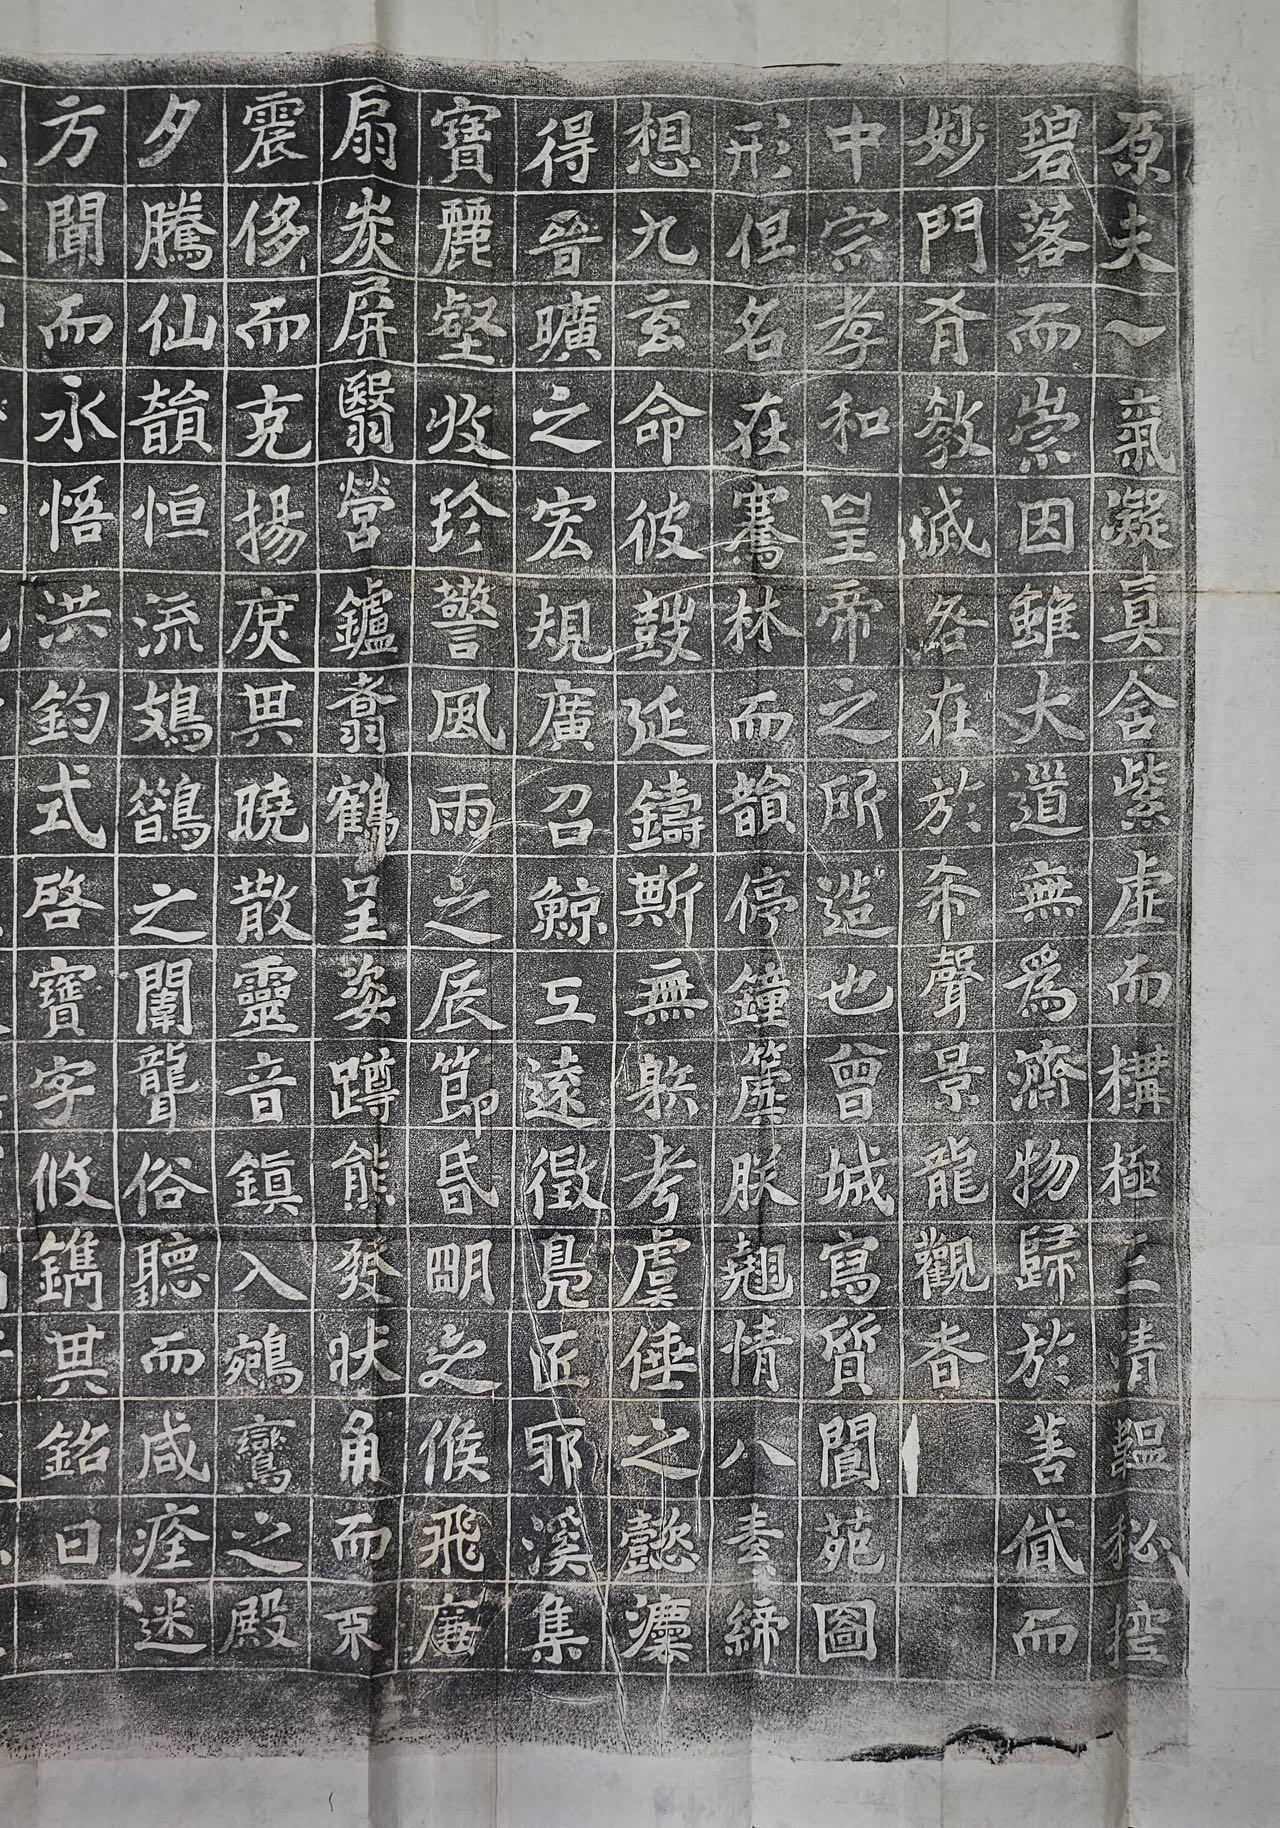 原夫一氣凝真含紫虛而構極三清韞秘控
碧落而崇因雖大道無為濟物歸於善貸而
妙門有教滅咎在於希聲景龍觀者
中宗孝和皇帝之所造也曾城寫質閬苑圖
形但名在騫林而韻停鐘簴朕翹情八素締
想九玄命彼鼓延鑄斯無躲考虞倕之懿灋
得晉曠之宏規廣召鯨工遠徵鳧匠耶溪集
寶麗壑收珍警風雨之辰節昏明之候飛廉
扇炭屏翳營鑪翥鶴呈姿蹲熊發狀角而不
震侈而克揚庶其曉散靈音鎮入鵷鸞之殿
夕騰仙韻恒流鳷鵲之闈聾俗聽而咸痊迷
方聞而永悟洪鈞式啓寶字攸鐫其銘曰